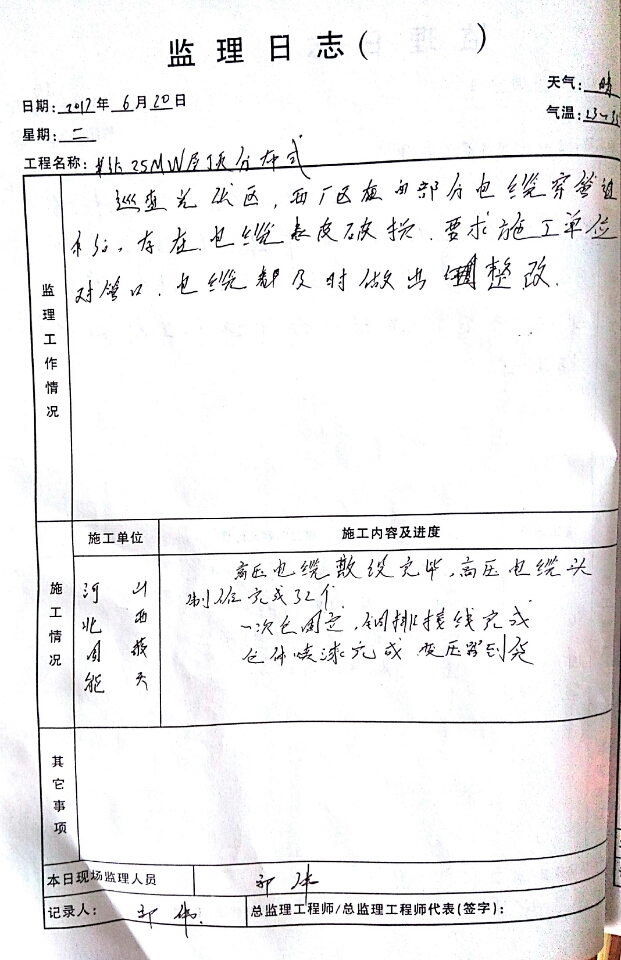 监理日志( )
天气: 晴
日期: 2017年 6月 20日
气温: 23~33
星期: 二
工程名称: 25MW屋顶分布式
监理工作情况
巡查光伏区,西厂区 内部分电缆穿管
存在电缆表皮破损.要求施工单位
对管口.电缆 及时做出 整改.
施工情况
施工单位
施工内容及进度
高压电缆敷设完毕,高压电缆头
制作完成32个
一次仓固定,铜排接线完成
仓体喷漆完成 变压器到货
河北
山西
其它事项
本日现场监理人员
记录人:
总监理工程师/总监理工程师代表(签字):